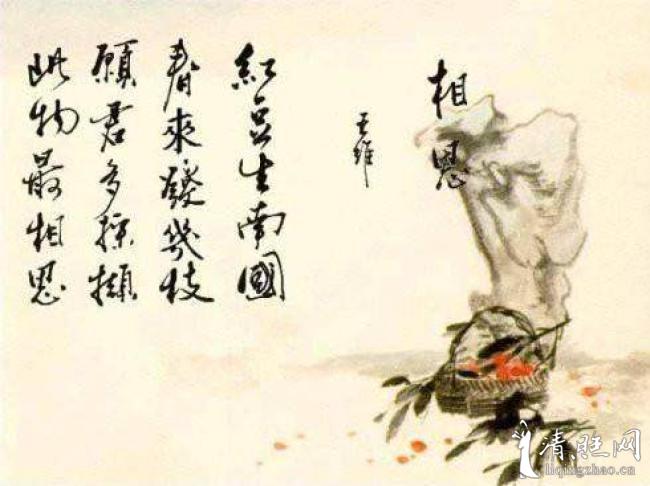 相思
王維
紅豆生南國
春來發幾枝
願君多採擷
此物最相思
清旺网
liqingzhao.cn